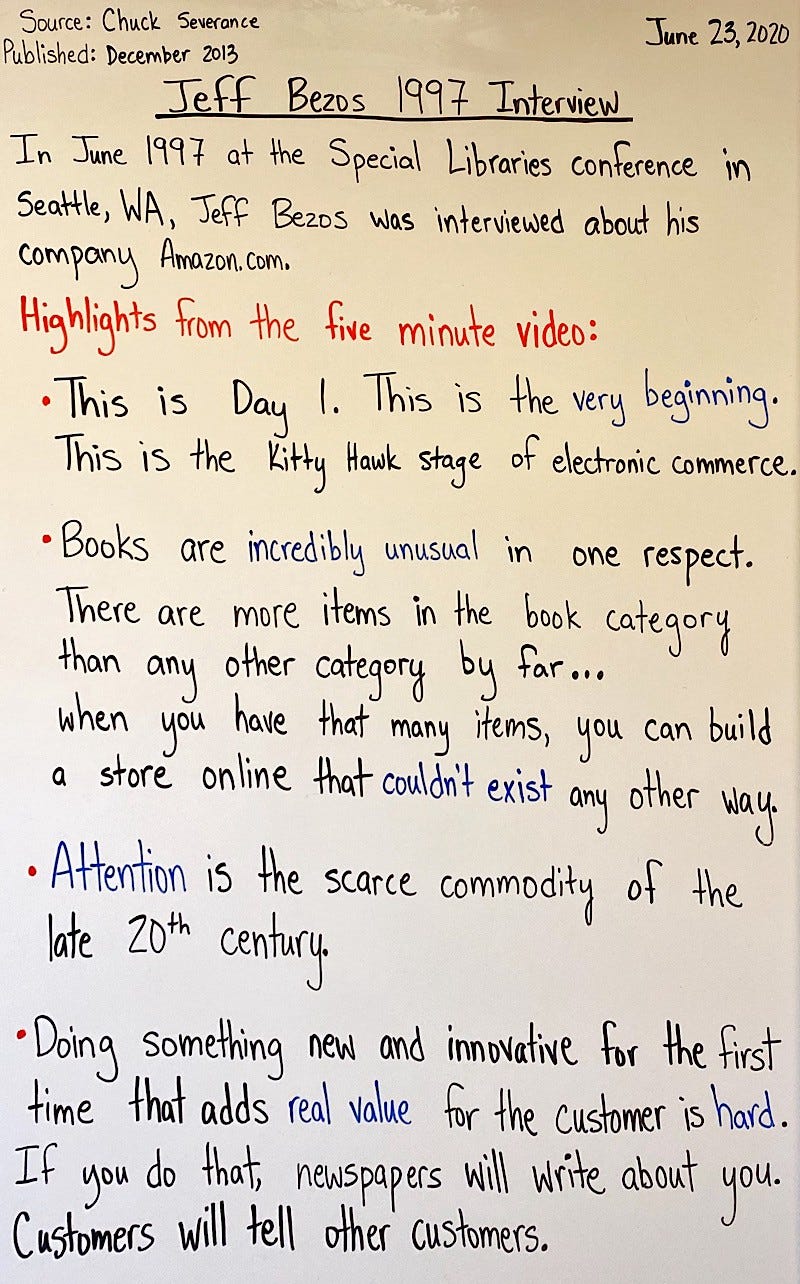 Source: Chuck Severance
June 23, 2020
Published: December 2013
Jeff Bezos 1997 Interview
In June 1997 at the Special Libraries conference in
Seattle, WA, Jeff Bezos was interviewed about his
company Amazon.com.
Highlights from the five minute video:
• This is Day 1. This is the very beginning.
This is the Kitty Hawk stage of electronic commerce.
• Books are incredibly unusual in one respect.
There are more items in the book category
than any other category by far...
when you have that many items, you can build
a store online that couldn't exist any other way.
• Attention is the scarce commodity of the
late 20th century.
• Doing something new and innovative for the first
time that adds real value for the customer is hard.
If you do that, newspapers will write about you.
Customers will tell other customers.